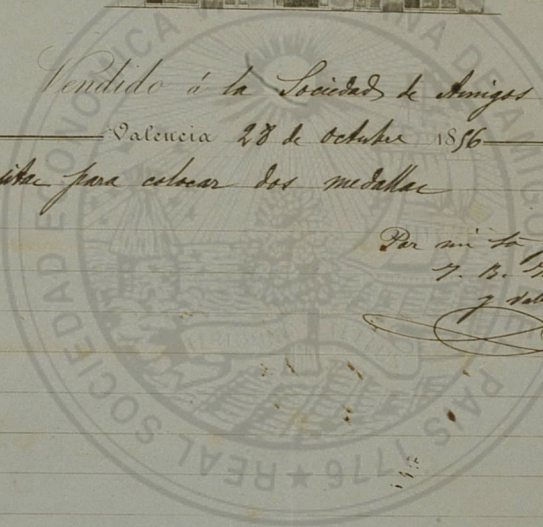 Vendido á la Sociedad de Amigos
Valencia 28 de octubre 1856
para colocar dos medallas
Por mi
REAL SOCIEDAD ECONOMICA
PAIS 1776